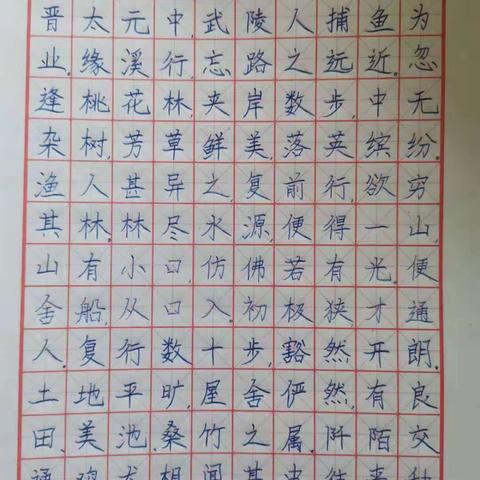 晋太元中,武陵人捕鱼为
业.缘溪行,忘路之远近.忽
逢桃花林,夹岸数步,中无
杂树,芳草鲜美,落英缤纷.
渔人甚异之.复前行,欲穷
其林.林尽水源,便得一山,
山有小口,仿佛若有光.便
舍船,从口入.初极狭,才通
人.复行数十步,豁然开朗.
土地平旷,屋舍俨然,有良
田、美池、桑竹之属.阡陌交